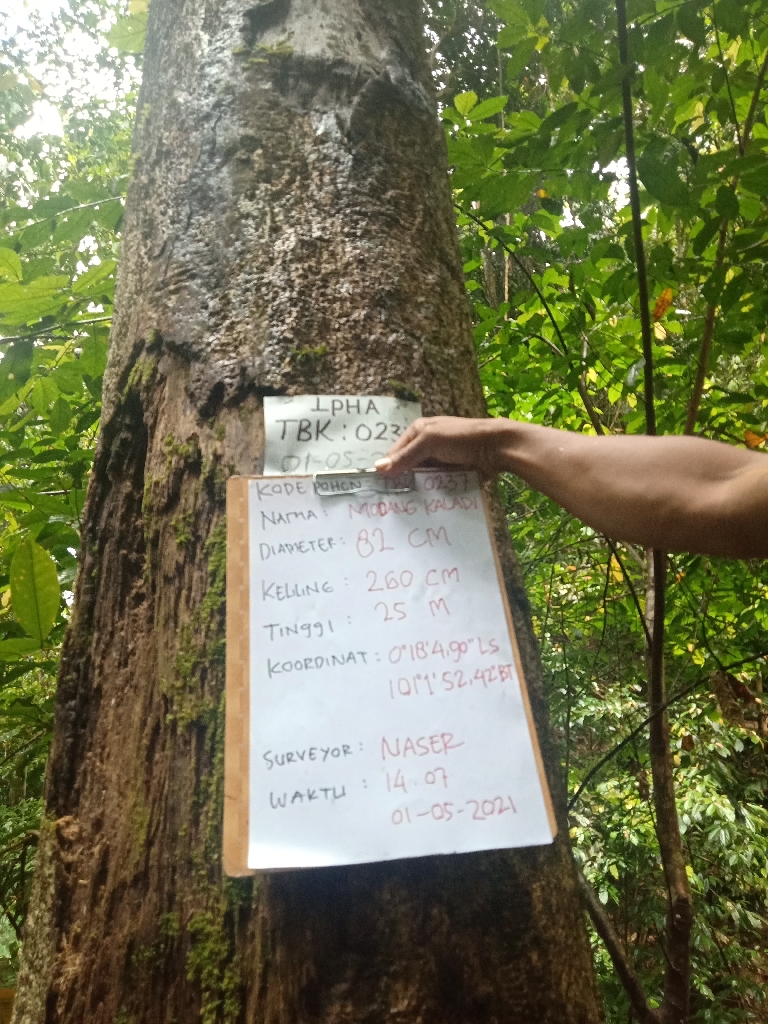 IPHA
TBK: 023
01-05-2
KODE POHON: TBK 0237
NAMA: MODANG KALADI
DIAMETER: 82 CM
KELILING: 260 CM
TINGGI: 25 M
KOORDINAT: 0°18'4,90" LS
101°1'52,42" BT
SURVEYOR: NASER
WAKTU: 14.07
01-05-2021